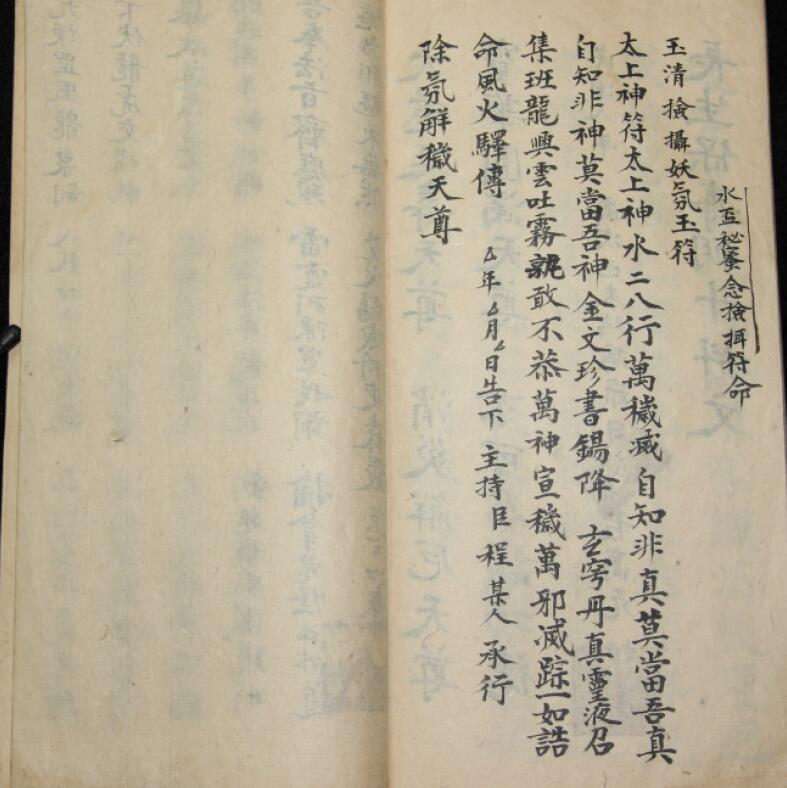 水盂秘蜜念捡押符命
玉清捡攝妖氛玉符
太上神符太上神水二八行萬穢滅自知非真莫當吾真
自知非神莫當吾神金文珍書錫降玄穹丹真靈液召
集班龍興雲吐霧孰敢不恭萬神宣穢萬邪滅踪一如誥
命風火驛傳 厶年厶月厶日告下 主持臣程某人承行
除氛解穢天尊